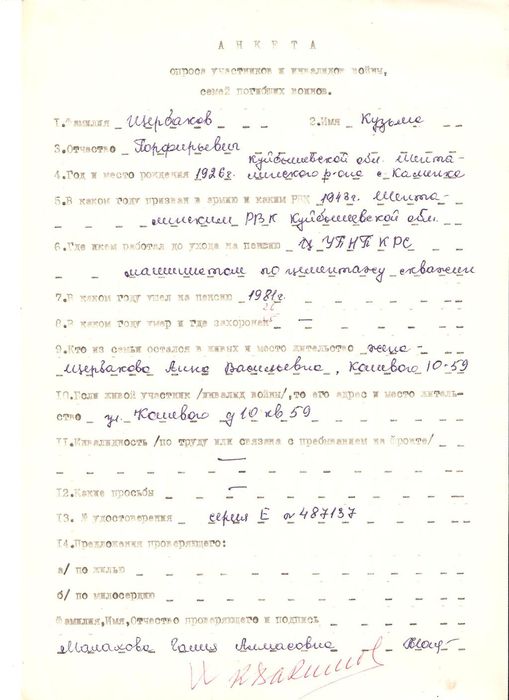 АНКЕТА
опроса участников и инвалидов войны,
семей погибших воинов.
1.Фамилия Щербаков 2.Имя Кузьма
3.Отчество Порфирьевич
Куйбышевской обл. Шента-
4.Год и место рождения 1926г. линского р-она с. Каменка
5.В каком году призван в армию и каким РВК 1943г. Шента-
минским РВК Куйбышевской обл.
6.Где и кем работал до ухода на пенсию ЦУПНП КРС
машинистом по цементажу скважин
7.В каком году ушел на пенсию 1981г.
8.В каком году умер и где захоронен —
9.Кто из семьи остался в живых и место жительство жена
Щербакова Анна Васильевна, Кошевого 10-59
10.Если живой участник /инвалид войны/,то его адрес и место житель-
ство ул. Кошевого д 10 кв 59
11.Инвалидность /по труду или связана с пребыванием на фронте/
—
12.Какие просьбы —
13. № удостоверения серия Е № 487137
14.Предложения проверяющего:
а/ по жилью
б/ по милосердию
Фамилия,Имя,Отчество проверяющего и подпись
Малахова Галия Алмасовна